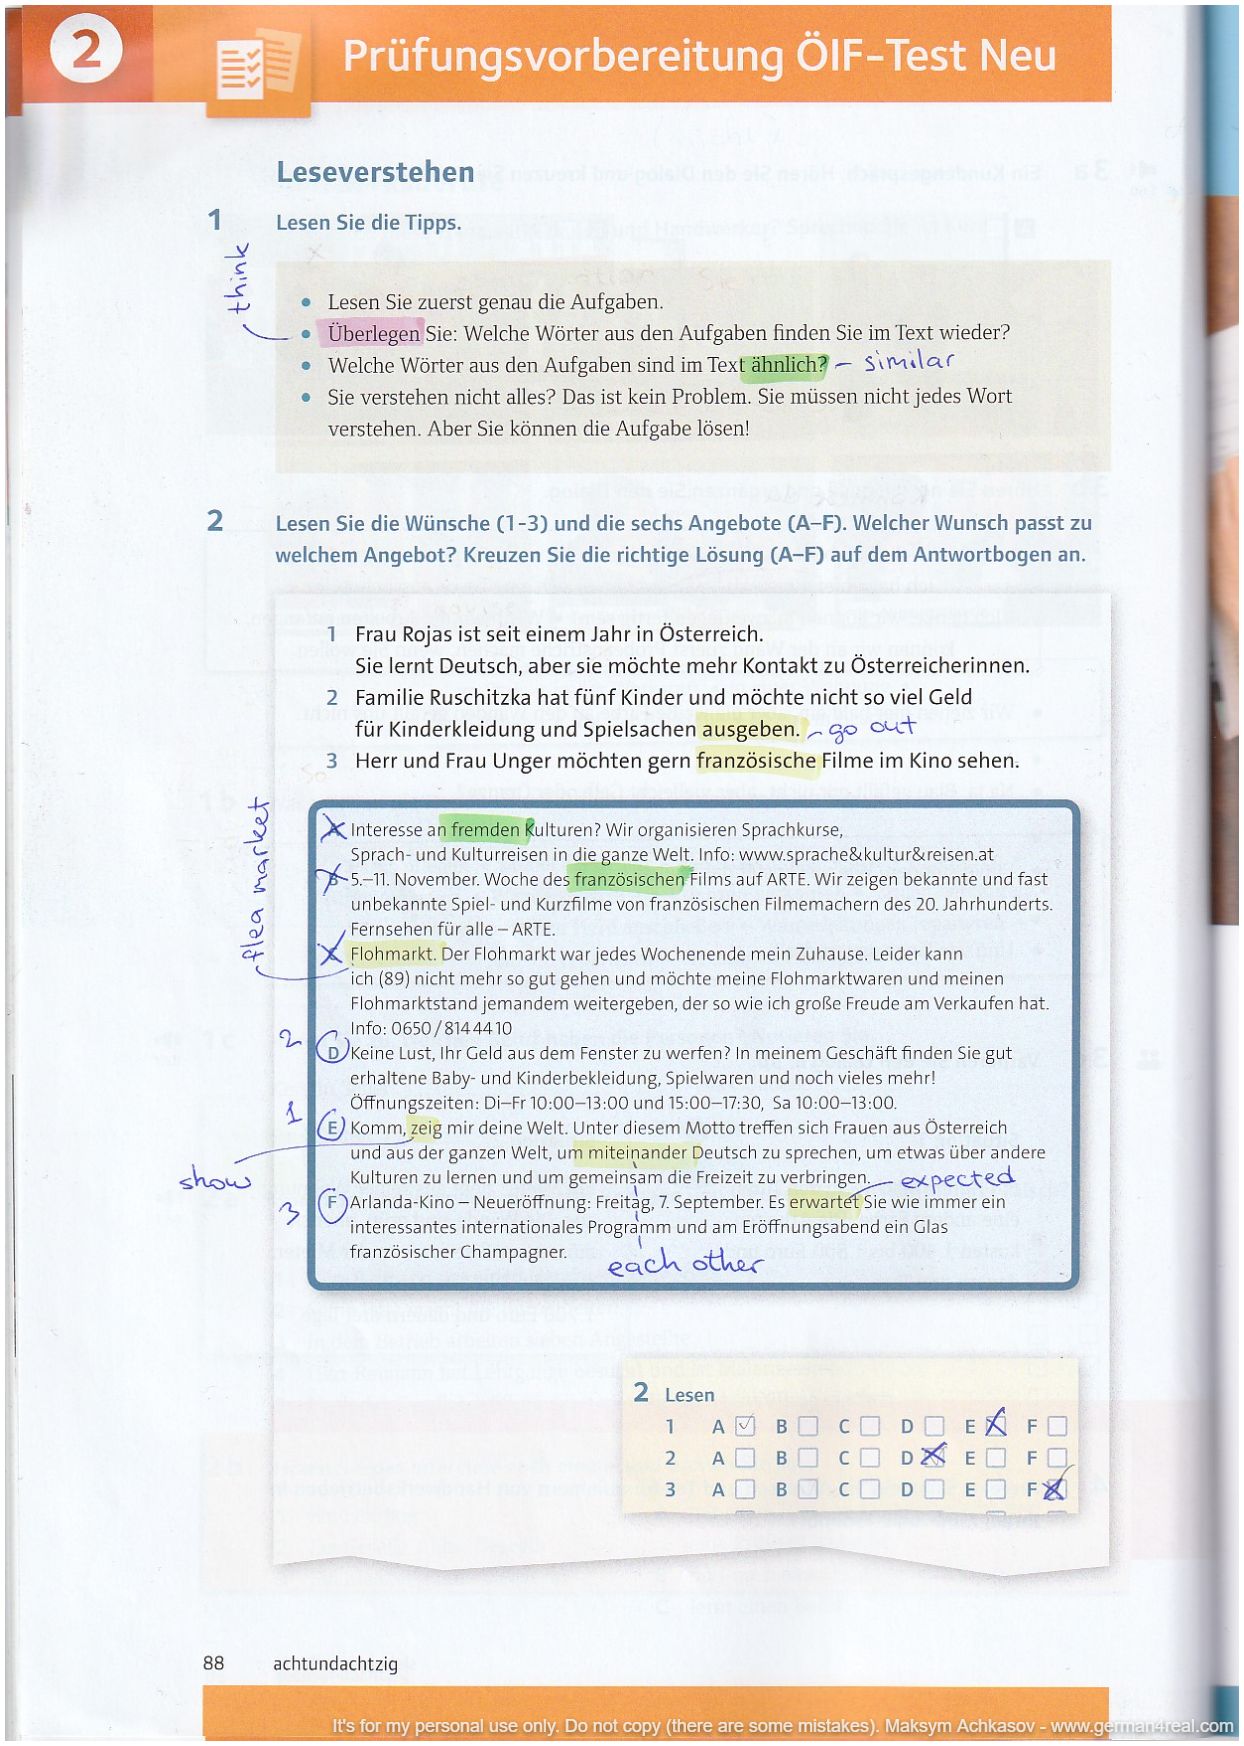 2
Prüfungsvorbereitung ÖIF-Test Neu
Leseverstehen
1 Lesen Sie die Tipps.
think
• Lesen Sie zuerst genau die Aufgaben.
• Überlegen Sie: Welche Wörter aus den Aufgaben finden Sie im Text wieder?
• Welche Wörter aus den Aufgaben sind im Text ähnlich? – similar
• Sie verstehen nicht alles? Das ist kein Problem. Sie müssen nicht jedes Wort
verstehen. Aber Sie können die Aufgabe lösen!
2 Lesen Sie die Wünsche (1-3) und die sechs Angebote (A–F). Welcher Wunsch passt zu
welchem Angebot? Kreuzen Sie die richtige Lösung (A–F) auf dem Antwortbogen an.
1 Frau Rojas ist seit einem Jahr in Österreich.
Sie lernt Deutsch, aber sie möchte mehr Kontakt zu Österreicherinnen.
2 Familie Ruschitzka hat fünf Kinder und möchte nicht so viel Geld
für Kinderkleidung und Spielsachen ausgeben. – go out
3 Herr und Frau Unger möchten gern französische Filme im Kino sehen.
flea market
A Interesse an fremden Kulturen? Wir organisieren Sprachkurse,
Sprach- und Kulturreisen in die ganze Welt. Info: www.sprache&kultur&reisen.at
B 5.–11. November. Woche des französischen Films auf ARTE. Wir zeigen bekannte und fast
unbekannte Spiel- und Kurzfilme von französischen Filmemachern des 20. Jahrhunderts.
Fernsehen für alle – ARTE.
C Flohmarkt. Der Flohmarkt war jedes Wochenende mein Zuhause. Leider kann
ich (89) nicht mehr so gut gehen und möchte meine Flohmarktwaren und meinen
Flohmarktstand jemandem weitergeben, der so wie ich große Freude am Verkaufen hat.
Info: 0650/8144410
2 D Keine Lust, Ihr Geld aus dem Fenster zu werfen? In meinem Geschäft finden Sie gut
erhaltene Baby- und Kinderbekleidung, Spielwaren und noch vieles mehr!
Öffnungszeiten: Di–Fr 10:00–13:00 und 15:00–17:30, Sa 10:00–13:00.
1 E Komm, zeig mir deine Welt. Unter diesem Motto treffen sich Frauen aus Österreich
und aus der ganzen Welt, um miteinander Deutsch zu sprechen, um etwas über andere
show Kulturen zu lernen und um gemeinsam die Freizeit zu verbringen. expected
3 F Arlanda-Kino – Neueröffnung: Freitag, 7. September. Es erwartet Sie wie immer ein
interessantes internationales Programm und am Eröffnungsabend ein Glas
französischer Champagner.
each other
2 Lesen
1 A B C D E F
2 A B C D E F
3 A B C D E F
88 achtundachtzig
It's for my personal use only. Do not copy (there are some mistakes). Maksym Achkasov - www.german4real.com